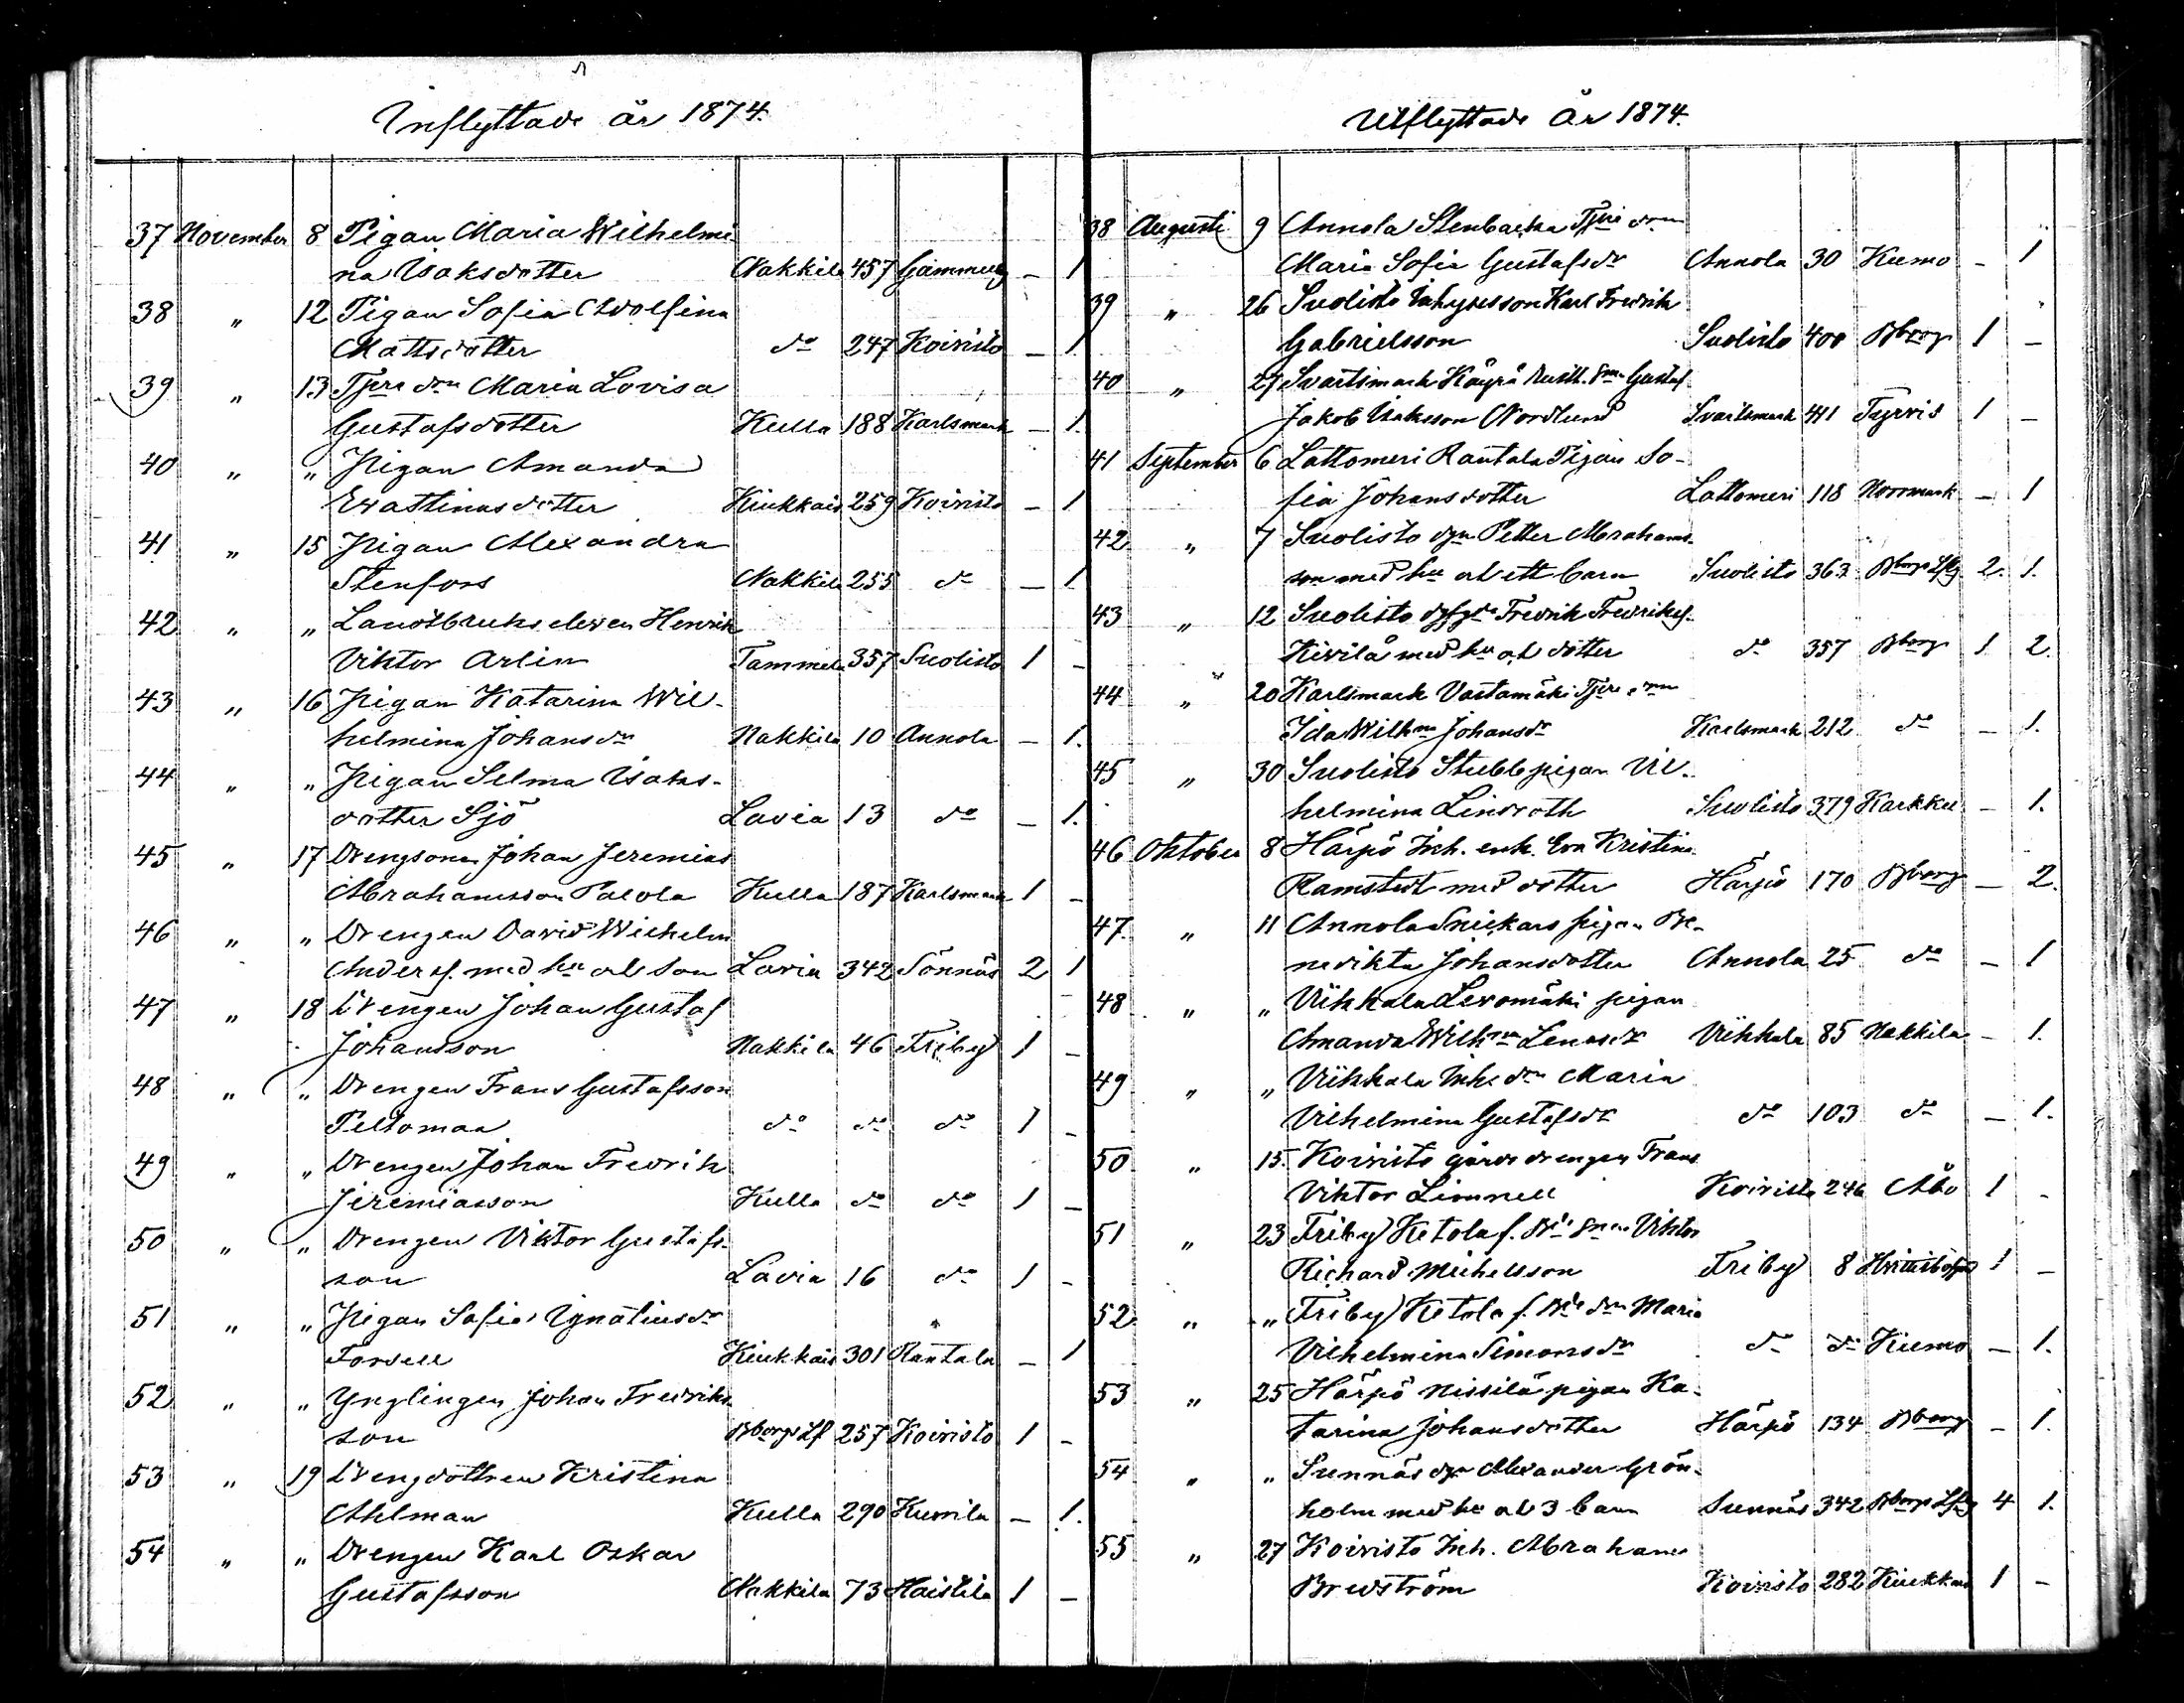 Inflyttade år 1874.
37 November 8 Pigan Maria Wilhelmi-
na Isaksdotter Nakkila 457 Gammelby – 1
38 " 12 Pigan Sofia Adolfina
Mattsdotter do 247 Koivisto – 1.
39 " 13 Tjen drn Maria Lovisa
Gustafsdotter Kulla 188 Karlsmark – 1.
40 " " Pigan Amanda
Erastinusdotter Kiukkais 259 Koivisto – 1
41 " 15 Pigan Alexandra
Stenfors Nakkila 255 do – 1.
42 " " Landtbruks eleven Henrik
Viktor Arlin Tammela 357 Suolisto 1 –
43 " 16 Pigan Katarina Wil-
helmina Johansdr Nakkila 10 Annola – 1.
44 " " Pigan Selma Isaks-
dotter Sjö Lavia 13 do – 1.
45 " 17 Drengsonen Johan Jeremias
Abrahamsson Palola Kulla 187 Karlsmark 1 –
46 " " Drengen David Wilhelm
Andersf. med hu och son Lavia 342 Sonnäs 2 1
47 " 18 Drengen Johan Gustaf
Johansson Nakkila 46 Friby 1 –
48 " " Drengen Frans Gustafsson
Peltomaa do do do 1 –
49 " " Drengen Johan Fredrik
Jeremiasson Kulla do do 1 –
50 " " Drengen Viktor Gustafs-
son Lavia 16 do 1 –
51 " " Pigan Sofia Ignatiusdr
Forsell Kiukkais 301 Rantala – 1
52 " " Ynglingen Johan Fredriks-
son Bborgs Lf 257 Koivisto 1 –
53 " 19 Drengdottren Kristina
Ahlman Kulla 290 Kumila – 1.
54 " " Drengen Karl Oskar
Gustafsson Nakkila 73 Haistila 1 –
Utflyttade År 1874.
38 Augusti 9 Annola Stenbacka Tjen drn
Maria Sofia Gustafsdr Annola 30 Kumo – 1
39 " 26 Suolisto Inhysesson Karl Fredrik
Gabrielsson Suolisto 400 Bborg 1 –
40 " 27 Svartsmark Käyrä Rusth. sn Gustaf
Jakob Isaksson Nordlund Svartsmark 411 Tyrvis 1 –
41 September 6 Lattomeri Rantala Pigan So-
fia Johansdotter Lattomeri 118 Norrmark – 1
42 " 7 Suolisto dgn Petter Abrahams-
son med hu och ett barn Suolisto 363 Bborgs Lfg 2. 1.
43 " 12 Suolisto Fredrik Fredriksf.
Kivilä med hu och dotter do 357 Bborg 1 2.
44 " 20 Karlsmark Vastamäki Tjen drn
Ida Wilhna Johansdr Karlsmark 212 do – 1.
45 " 30 Suolisto Stubb pigan Vil-
helmina Lindroth Suolisto 379 Karkku – 1.
46 Oktober 8 Harjo Inh. enk. Eva Kristina
Ramstedt med dotter Harjo 170 Bborg – 2.
47 " 11 Annola Snickars pigan Be-
nedikta Johansdotter Annola 25 do – 1
48 " " Vikkala Levomäki pigan
Amanda Wilhna Vikkala 85 Nakkila – 1.
49 " " Vikkala Inhs drn Maria
Vilhelmina Gustafsdr do 103 do – 1.
50 " 15. Koivisto gårds drengen Frans
Viktor Limnell Koivisto 246 Åbo 1 –
51 " 23 Friby Ketola f. Bde snn Viktor
Richard Michelsson Friby 8 1 –
52 " " Friby Ketola f. Bde drn Maria
Vilhelmina Simonsdr do do Kiumo – 1.
53 " 25 Harjo Nissilä pigan Ka-
tarina Johansdotter Harjo 134 Bborg – 1.
54 " " Sunnäs dgn Alexander Grön-
holm med hu och 3 barn Sunnäs 342 Bborgs Lfg 4 1.
55 " 27 Koivisto Inh. Abraham
Bredström Koivisto 282 Kiukkais 1 –